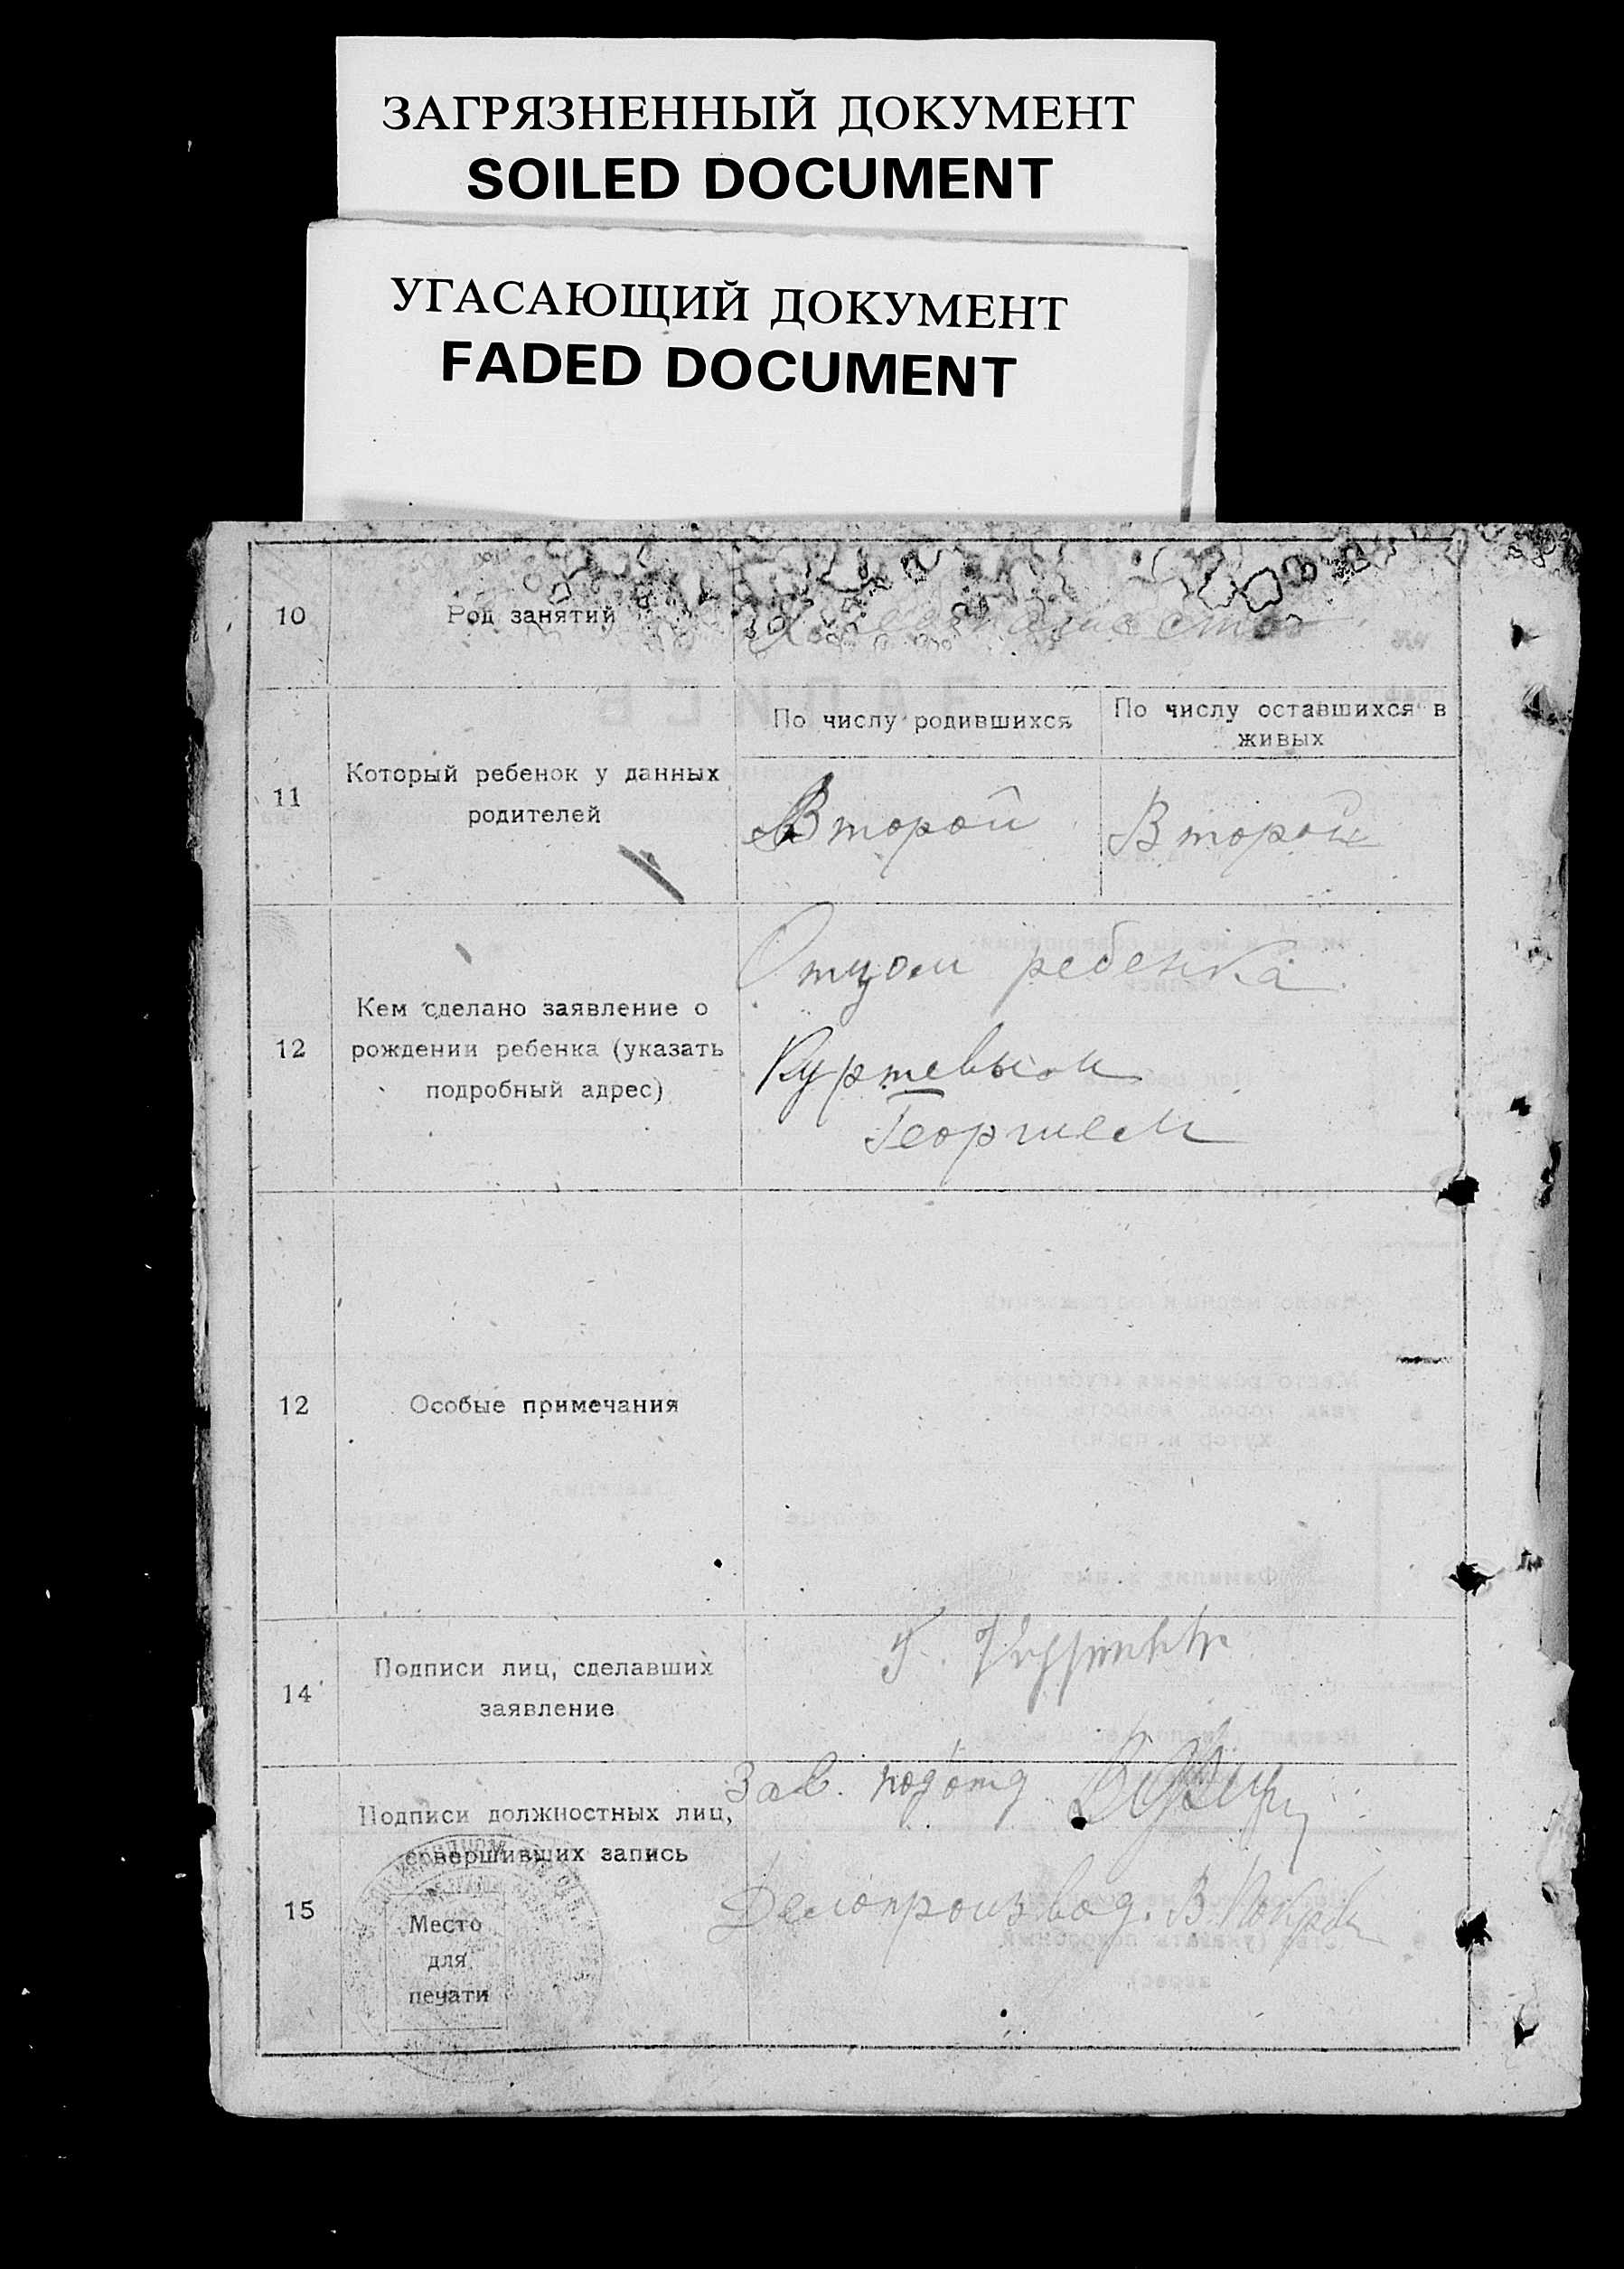 ЗАГРЯЗНЕННЫЙ ДОКУМЕНТ
SOILED DOCUMENT
УГАСАЮЩИЙ ДОКУМЕНТ
FADED DOCUMENT
10
Род занятий
11
Который ребенок у данных
родителей
По числу родившихся
По числу оставшихся в
живых
Второй
Второй
12
Кем сделано заявление о
рождении ребенка (указать
подробный адрес)
Отцом ребенка
Куртевым
Георгием
12
Особые примечания
14
Подписи лиц, сделавших
заявление
15
Подписи должностных лиц,
совершивших запись
Место
для
печати
Зав. подотд
Делопроизвод. В.